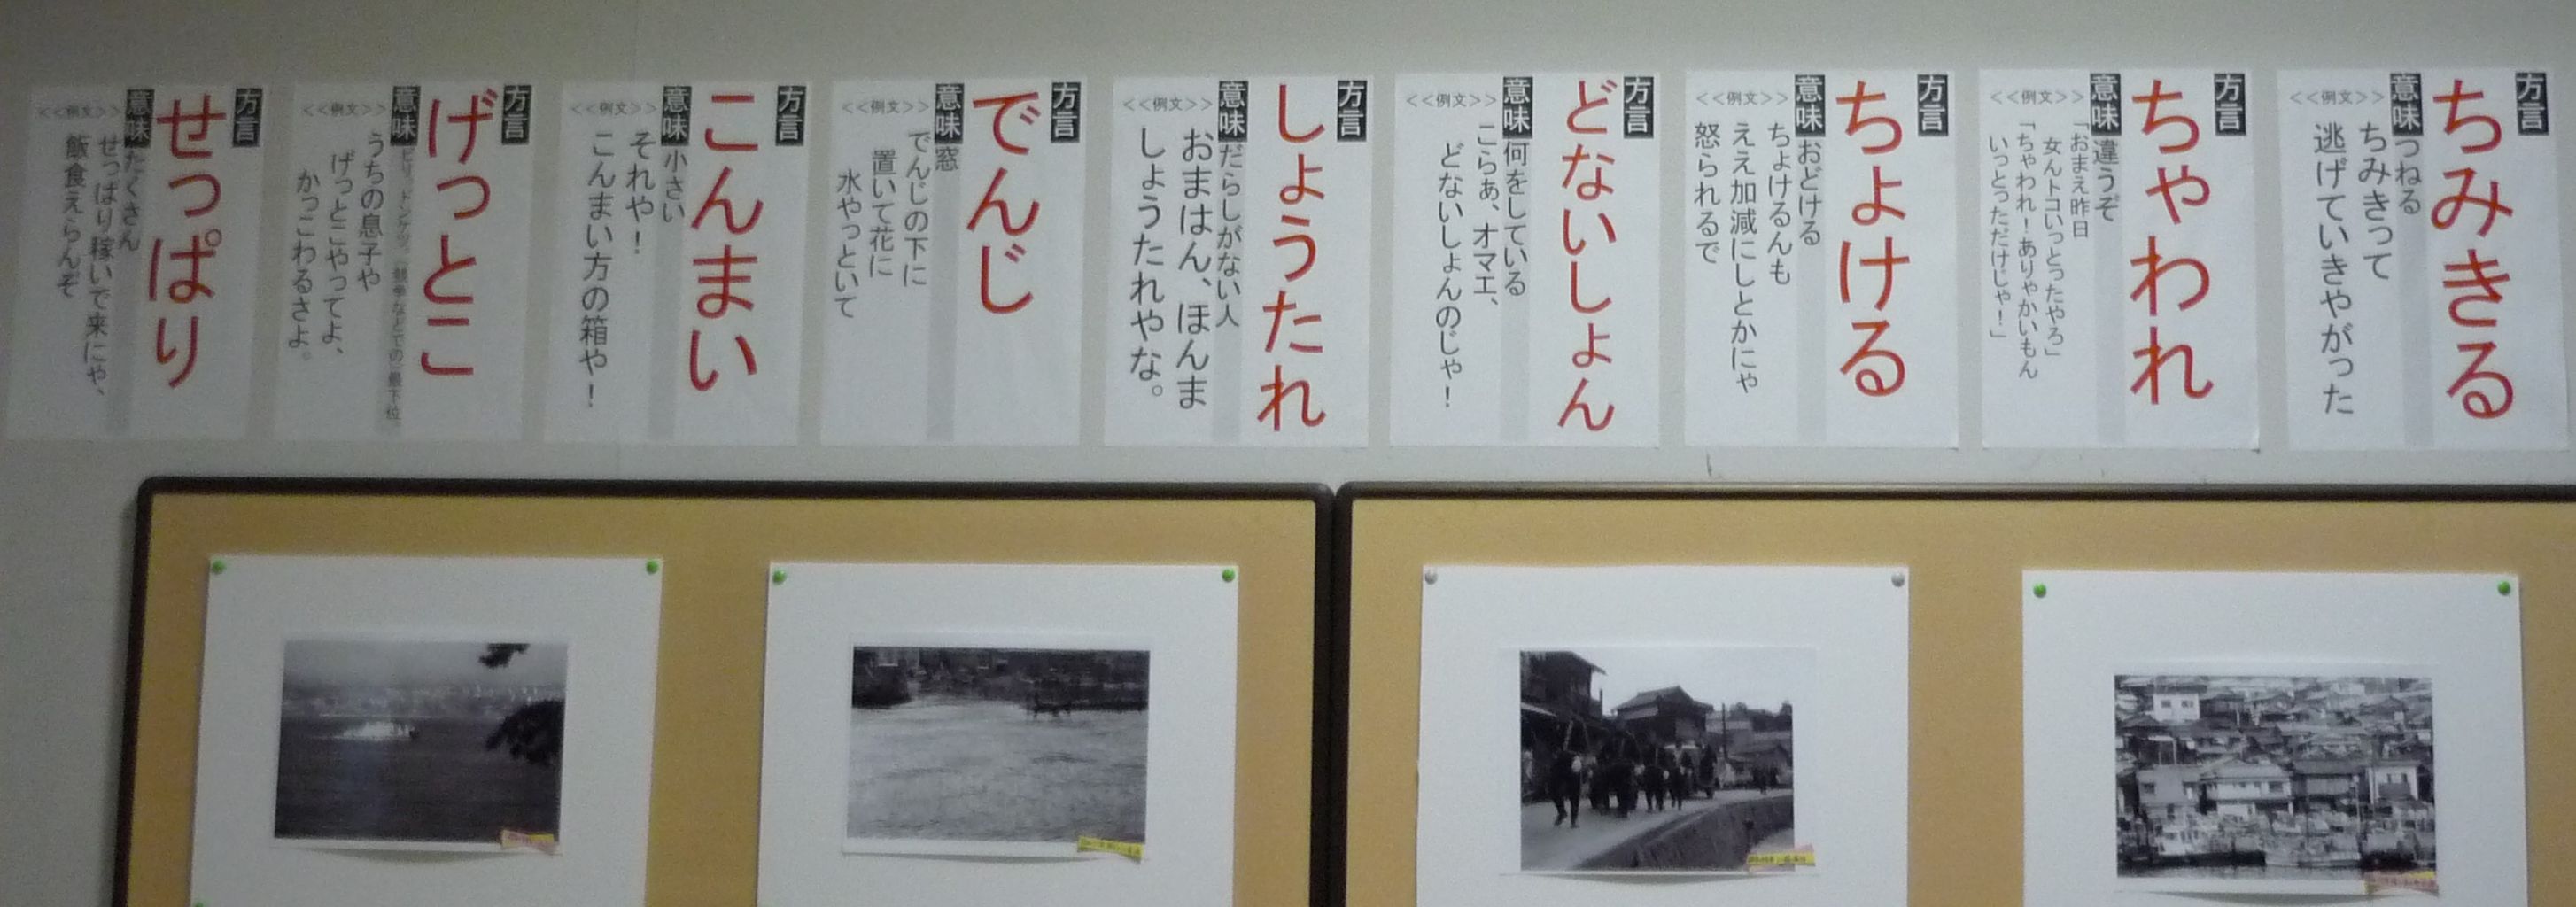 方言
ちみきる
意味 つねる
<<例文>>
ちみきって
逃げていきやがった
方言
ちゃわれ
意味 違うぞ
<<例文>>
「おまえ昨日
女んトコいっとったやろ」
「ちゃわれ！ありゃかいもん
いっとっただけじゃ！」
方言
ちょける
意味 おどける
<<例文>>
ちょけるんも
ええ加減にしとかにゃ
怒られるで
方言
どないしょん
意味 何をしている
<<例文>>
こらぁ、オマエ、
どないしょんのじゃ！
方言
しょうたれ
意味 だらしがない人
<<例文>>
おまはん、ほんま
しょうたれやな。
方言
でんじ
意味 窓
<<例文>>
でんじの下に
置いて花に
水やっといて
方言
こんまい
意味 小さい
<<例文>>
それや！
こんまい方の箱や！
方言
げっとこ
意味 ビリ、ドンケツ。（競争などでの）最下位
<<例文>>
うちの息子や
げっとこやってよ、
かっこわるさよ。
方言
せっぱり
意味 たくさん
<<例文>>
せっぱり稼いで来にゃ、
飯食えらんぞ